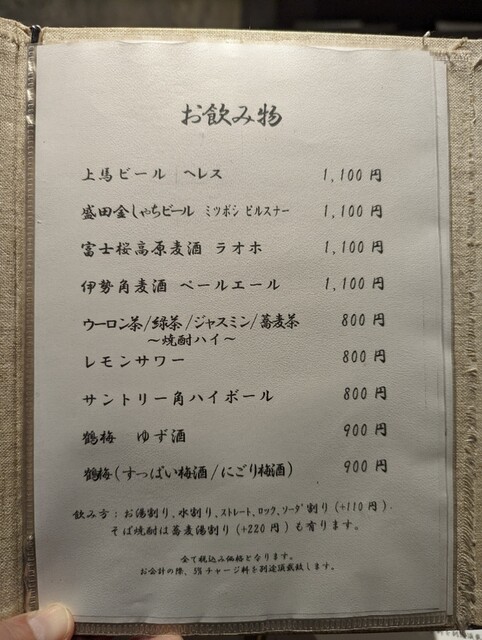 お飲み物
上馬ビール ヘレス 1,100 円
盛田金しゃちビール ミツボシ ピルスナー 1,100 円
富士桜高原麦酒 ラオホ 1,100 円
伊勢角麦酒 ペールエール 1,100 円
ウーロン茶/緑茶/ジャスミン/蕎麦茶 800 円
～焼酎ハイ～
レモンサワー 800 円
サントリー角ハイボール 800 円
鶴梅 ゆず酒 900 円
鶴梅(すっぱい梅酒/にごり梅酒) 900 円
飲み方:お湯割り、水割り、ストレート、ロック、ソーダ割り(+110円).
そば焼酎は蕎麦湯割り(+220円)も有ります。
全て税込み価格となります。
お会計の際、5%チャージ料を別途頂戴致します。